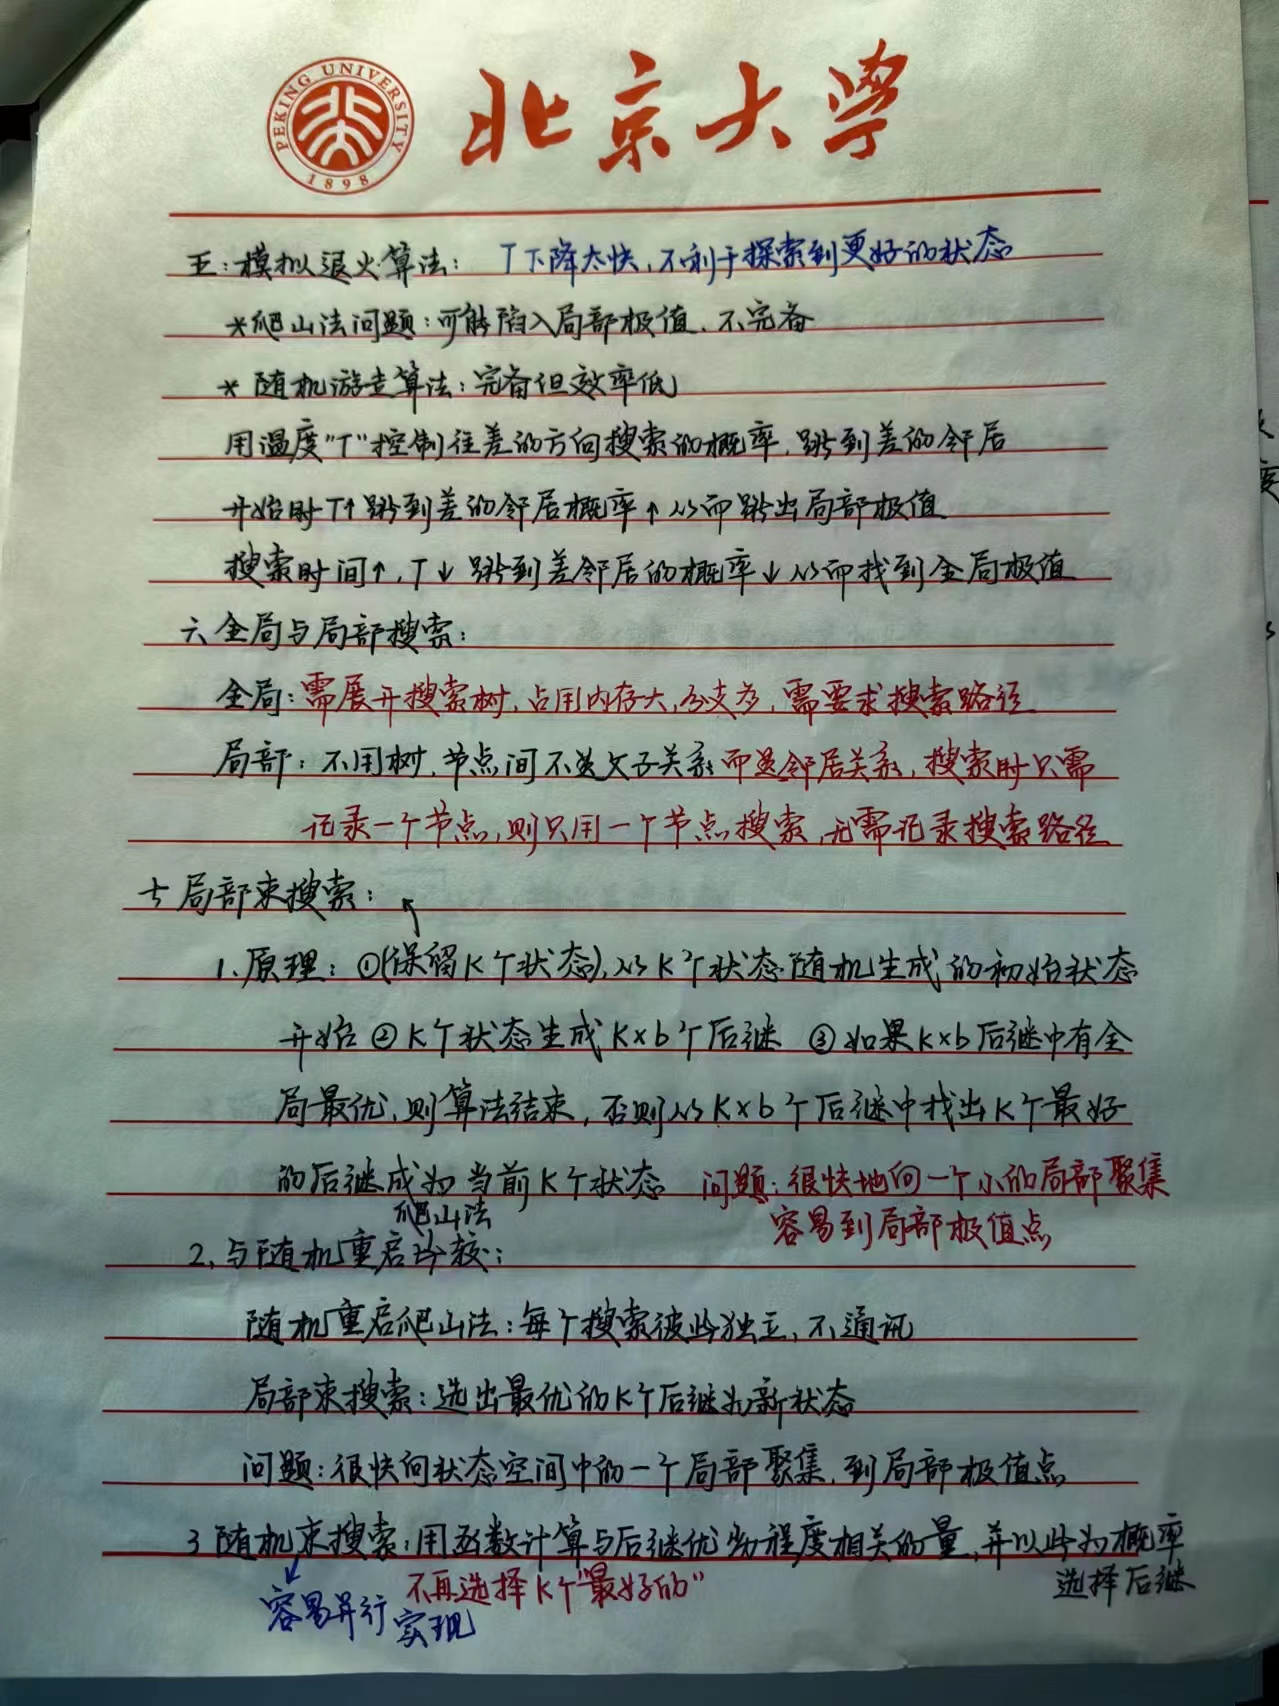 PEKING UNIVERSITY
1898
北京大学
五：模拟退火算法： T下降太快，不利于探索到更好的状态
*爬山法问题：可能陷入局部极值、不完备
* 随机游走算法：完备但效率低
用温度"T"控制往差的方向搜索的概率，跳到差的邻居
开始时T↑ 跳到差的邻居概率↑ 从而跳出局部极值
搜索时间↑，T↓ 跳到差邻居的概率↓ 从而找到全局极值
六 全局与局部搜索：
全局：需展开搜索树，占用内存大，分支多，需要求搜索路径
局部：不用树，节点间不是父子关系而是邻居关系，搜索时只需
记录一个节点，则只用一个节点搜索，无需记录搜索路径
七 局部束搜索：
1、原理：①(保留K个状态)，从K个状态随机生成的初始状态
开始 ②K个状态生成K×b个后继 ③如果K×b后继中有全
局最优，则算法结束，否则从K×b个后继中找出K个最好
的后继成为当前K个状态 问题：很快地向一个小的局部聚集
容易到局部极值点
爬山法
2、与随机重启比较：
随机重启爬山法：每个搜索彼此独立，不通讯
局部束搜索：选出最优的K个后继为新状态
问题：很快向状态空间中的一个局部聚集，到局部极值点
3 随机束搜索：用函数计算与后继优劣程度相关的量，并以此为概率
选择后继
不再选择K个"最好的"
容易并行实现